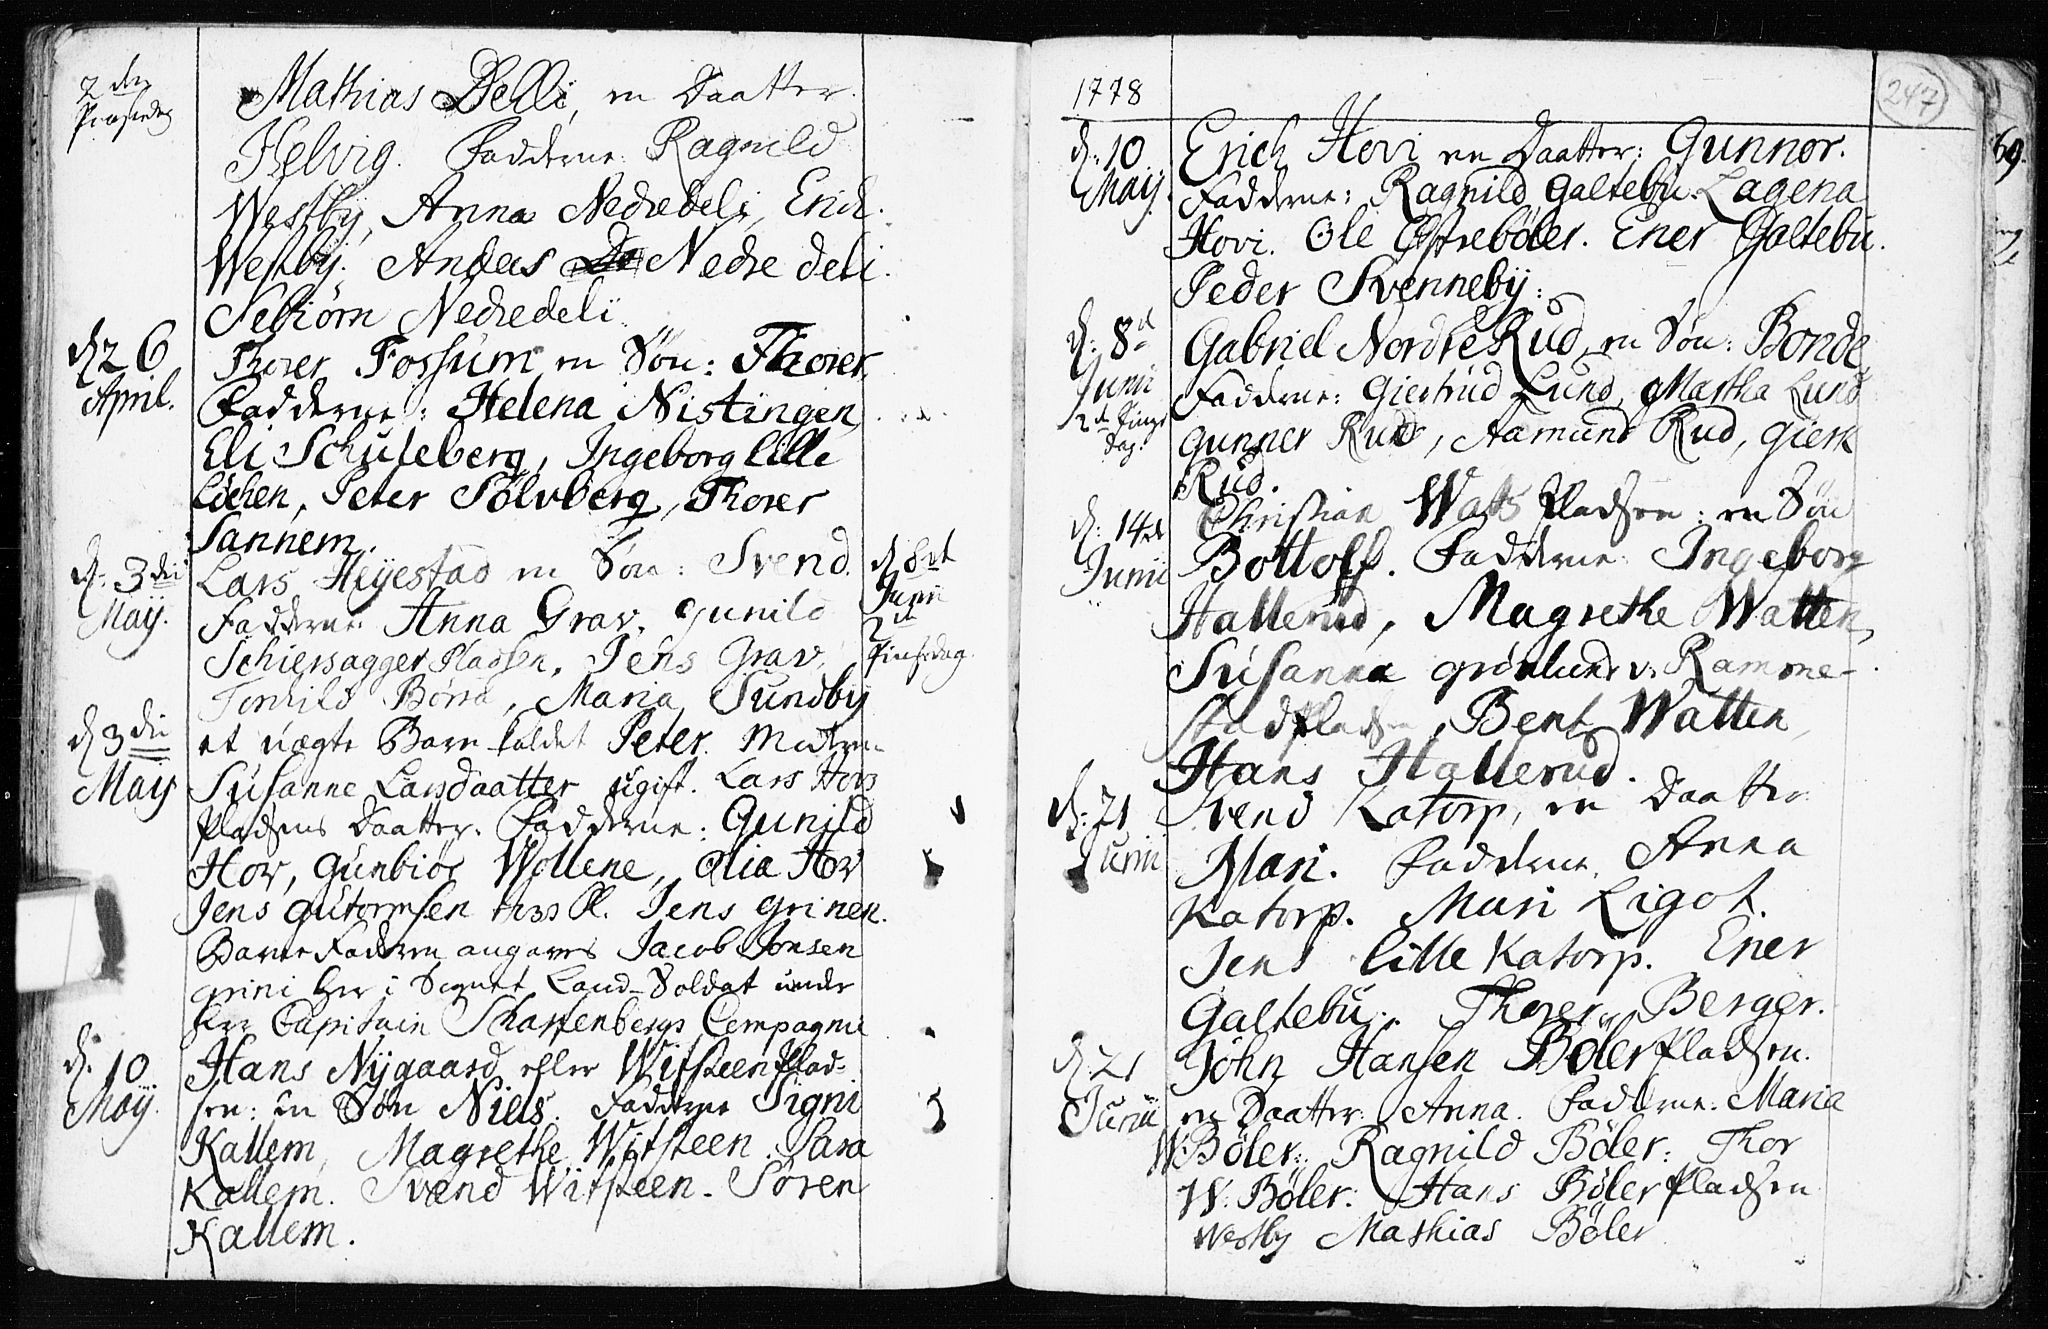 2den
Paaskedag
Mathias Delli, en Daatter
Helvig. Fadderne: Ragnild
Westby, Anna Nedredeli, Erich
Westbÿ. Anders Nedre deli.
Sebiørn Nedredeli
d 26
April.
Thorer Fossum en Søn: Thorer.
Fadderne: Helena Nistingen,
Eli Schuleberg, Ingeborg lille
Løchen, Peter Sølvberg, Thorer
Sannem.
d: 3die
Maÿ.
Lars Heÿestad en Søn: Svend.
Fadderne: Anna Grav, Gunild
Schiersagger Pladsen, Jens Grav,
Børra, Maria Sundby
d 8de
Junii
2den
Pinsedag.
d 3die
Maÿ
et uægte Barn kaldet Peter. Moderen
Susanne Larsdaatter ugift. Lars Hovs
Pladsens Daatter. Fadderne: Gunild
Hov, Gunbiør Wollene, Olia Hov
Jens Gutormsen Hovs Pl. Jens Grinen.
Barne Faderen angaves Jacob Jonsen
Grini her i Sognet Land-Soldat under
Herr Capitain Scharfenbergs Compagnie
d: 10
Maÿ.
Hans Nÿgaard eller Witsteen Plad-
sen: en Søn Niels. Fadderne Signi
Kallem, Magrethe Witsteen. Sara
Kallem. Svend Witsteen. Søren
Kallem.
1778
247
69.
d: 10
Maÿ.
Erich Hovi en Daatter: Gunnor.
Fadderne: Ragnild Galtebu. Lagena
Hovi. Ole Østrebøler. Ener Galtebu.
Peder Svennebÿ:
d: 8de
Junii
2de Pinse
Dag.
Gabriel Nordre Rud, en Søn: Bonde
Fadderne: Giertrud Lund, Martha Lund
Gunner Rud, Aamund Rud, Giert
Rud.
d: 14de
Junii
Christian Watts Pladsen: en Søn
Bottolff. Fadderne: Ingeborg
Hallerud, Magrethe Watten,
Susanna Grønlund v: Ramme-
stadpladsen, Bent Watten,
Hans Hallerud.
d: 21
Junii
Svend Katorp, en Daatter
Mari. Fadderne. Anna
Katorp. Mari Ligot.
Jens lille Katorp. Ener
Galtebu. Thorer Berger.
d 21
Junii
John Hansen Bøler Pladsen.
en Daatter: Anna. Fadderne: Maria
W: Bøler: Ragnild Bøler: Thor
W: Bøler: Hans Bøler Pladsen
Westby Mathias Bøler